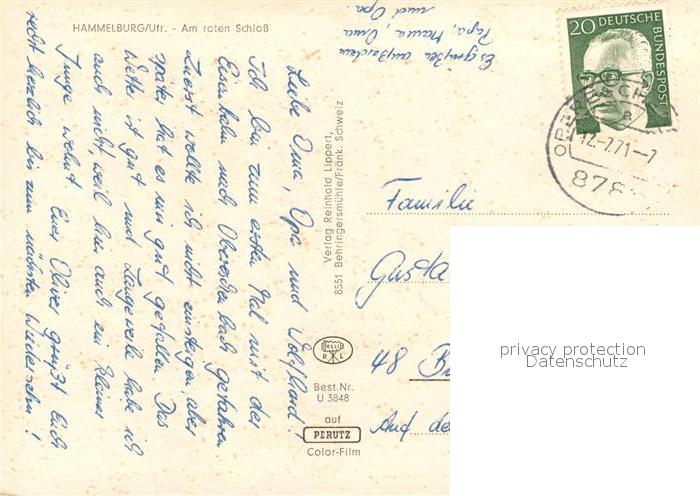 HAMMELBURG/Ufr. - Am roten Schloß
Liebe Oma, Opa und Wolfhard!
Ich bin zum ersten Mal mit der
Eisenbahn nach Obererden bach gefahren
Zuerst wollte ich nicht einsteigen, aber
später hat es mir gut gefallen. Das
Wetter ist gut und Langeweile habe ich
auch nicht, weil hier auch ein kleiner
Junge wohnt. Euer Oliver grüßt Euch
recht herzlich bis zum nächsten Wiedersehn!
Es grüßen außerdem
Papa, Mama, Oma
und Opa.
Verlag Reinhold Lippert,
8551 Behringersmühle/Fränk. Schweiz
RELI
R L
Best.Nr.
U 3848
auf
PERUTZ
Color-Film
20 DEUTSCHE
BUNDESPOST
12.-7.71-7
878
Familie
Gusta
48 B
Auf de
privacy protection
Datenschutz